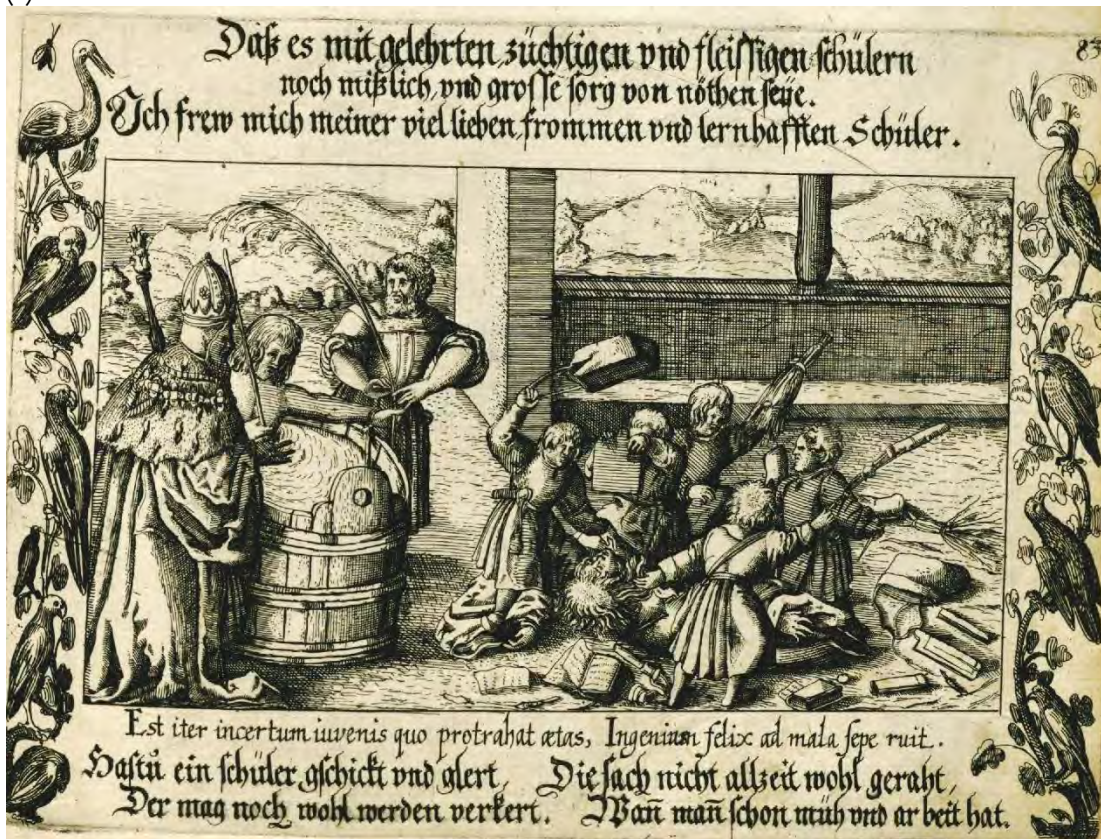 Daß es mit gelehrten, züchtigen vnd fleissigen schülern
83
noch mißlich, vnd grosse sorg von nöthen seÿe.
Ich frew mich meiner viel lieben, frommen vnd lernhafften Schüler.
Est iter incertum iuvenis quo protrahat ætas, Ingenium felix ad mala sepe ruit.
Hastu ein schüler gschickt vnd glert, Die sach nicht allzeit wohl geraht,
Der mag noch wohl werden verkert. Wañ mañ schon müh vnd arbeit hat.